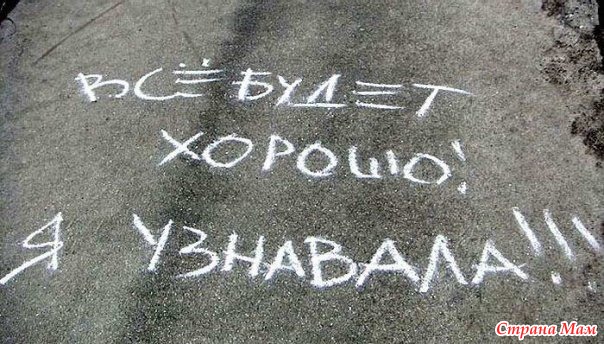 ВСЁ БУДЕТ
ХОРОШО!
Я УЗНАВАЛА!!!
Страна Мам